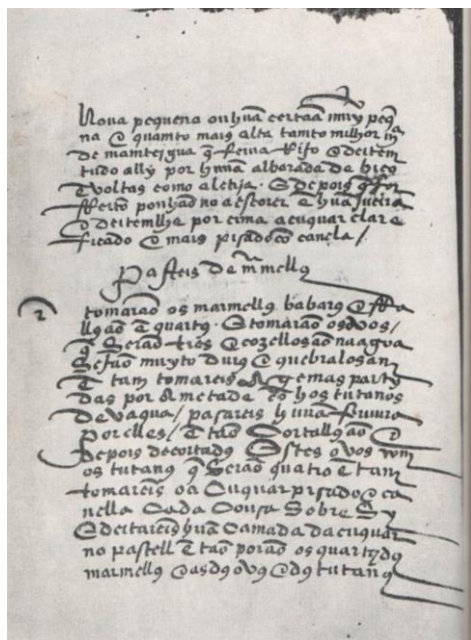 Nova pequena ou huã certaã muy peq̃
na E quamto mais alta tamto milhor
de mamteigua q̃ ferva Rijo E deitem
tudo ally por huã de bico
E voltas como aletija. E depois q̃ for
ponhaõ no a escorer E huã
E deitemlhe por cima acuquar clare
ficado E mais pisado cõ canela /
Pasteis de mᵃrmellos
tomaraõ os marmellos E
E quartos. E tomaraõ os ovos /
q̃ seraõ tres E cozellos aõ na agoa
muyto duros E quebralosam
E tam tomareis as gemas party
das por a metade E hos tutanos
de vaqua / pasareis huã
por elles / E taõ cortallos aõ E
depois de cortados Estes ovos com
os tutanos q̃ seraõ quatro E tam
tomareis o acuquar pisado E ca
nella cada cousa sobre sy
E deitareis huã camada dacuquar
no pastell E taõ poraõ os quartos dos
marmellos E as dos ovos E dos tutanos